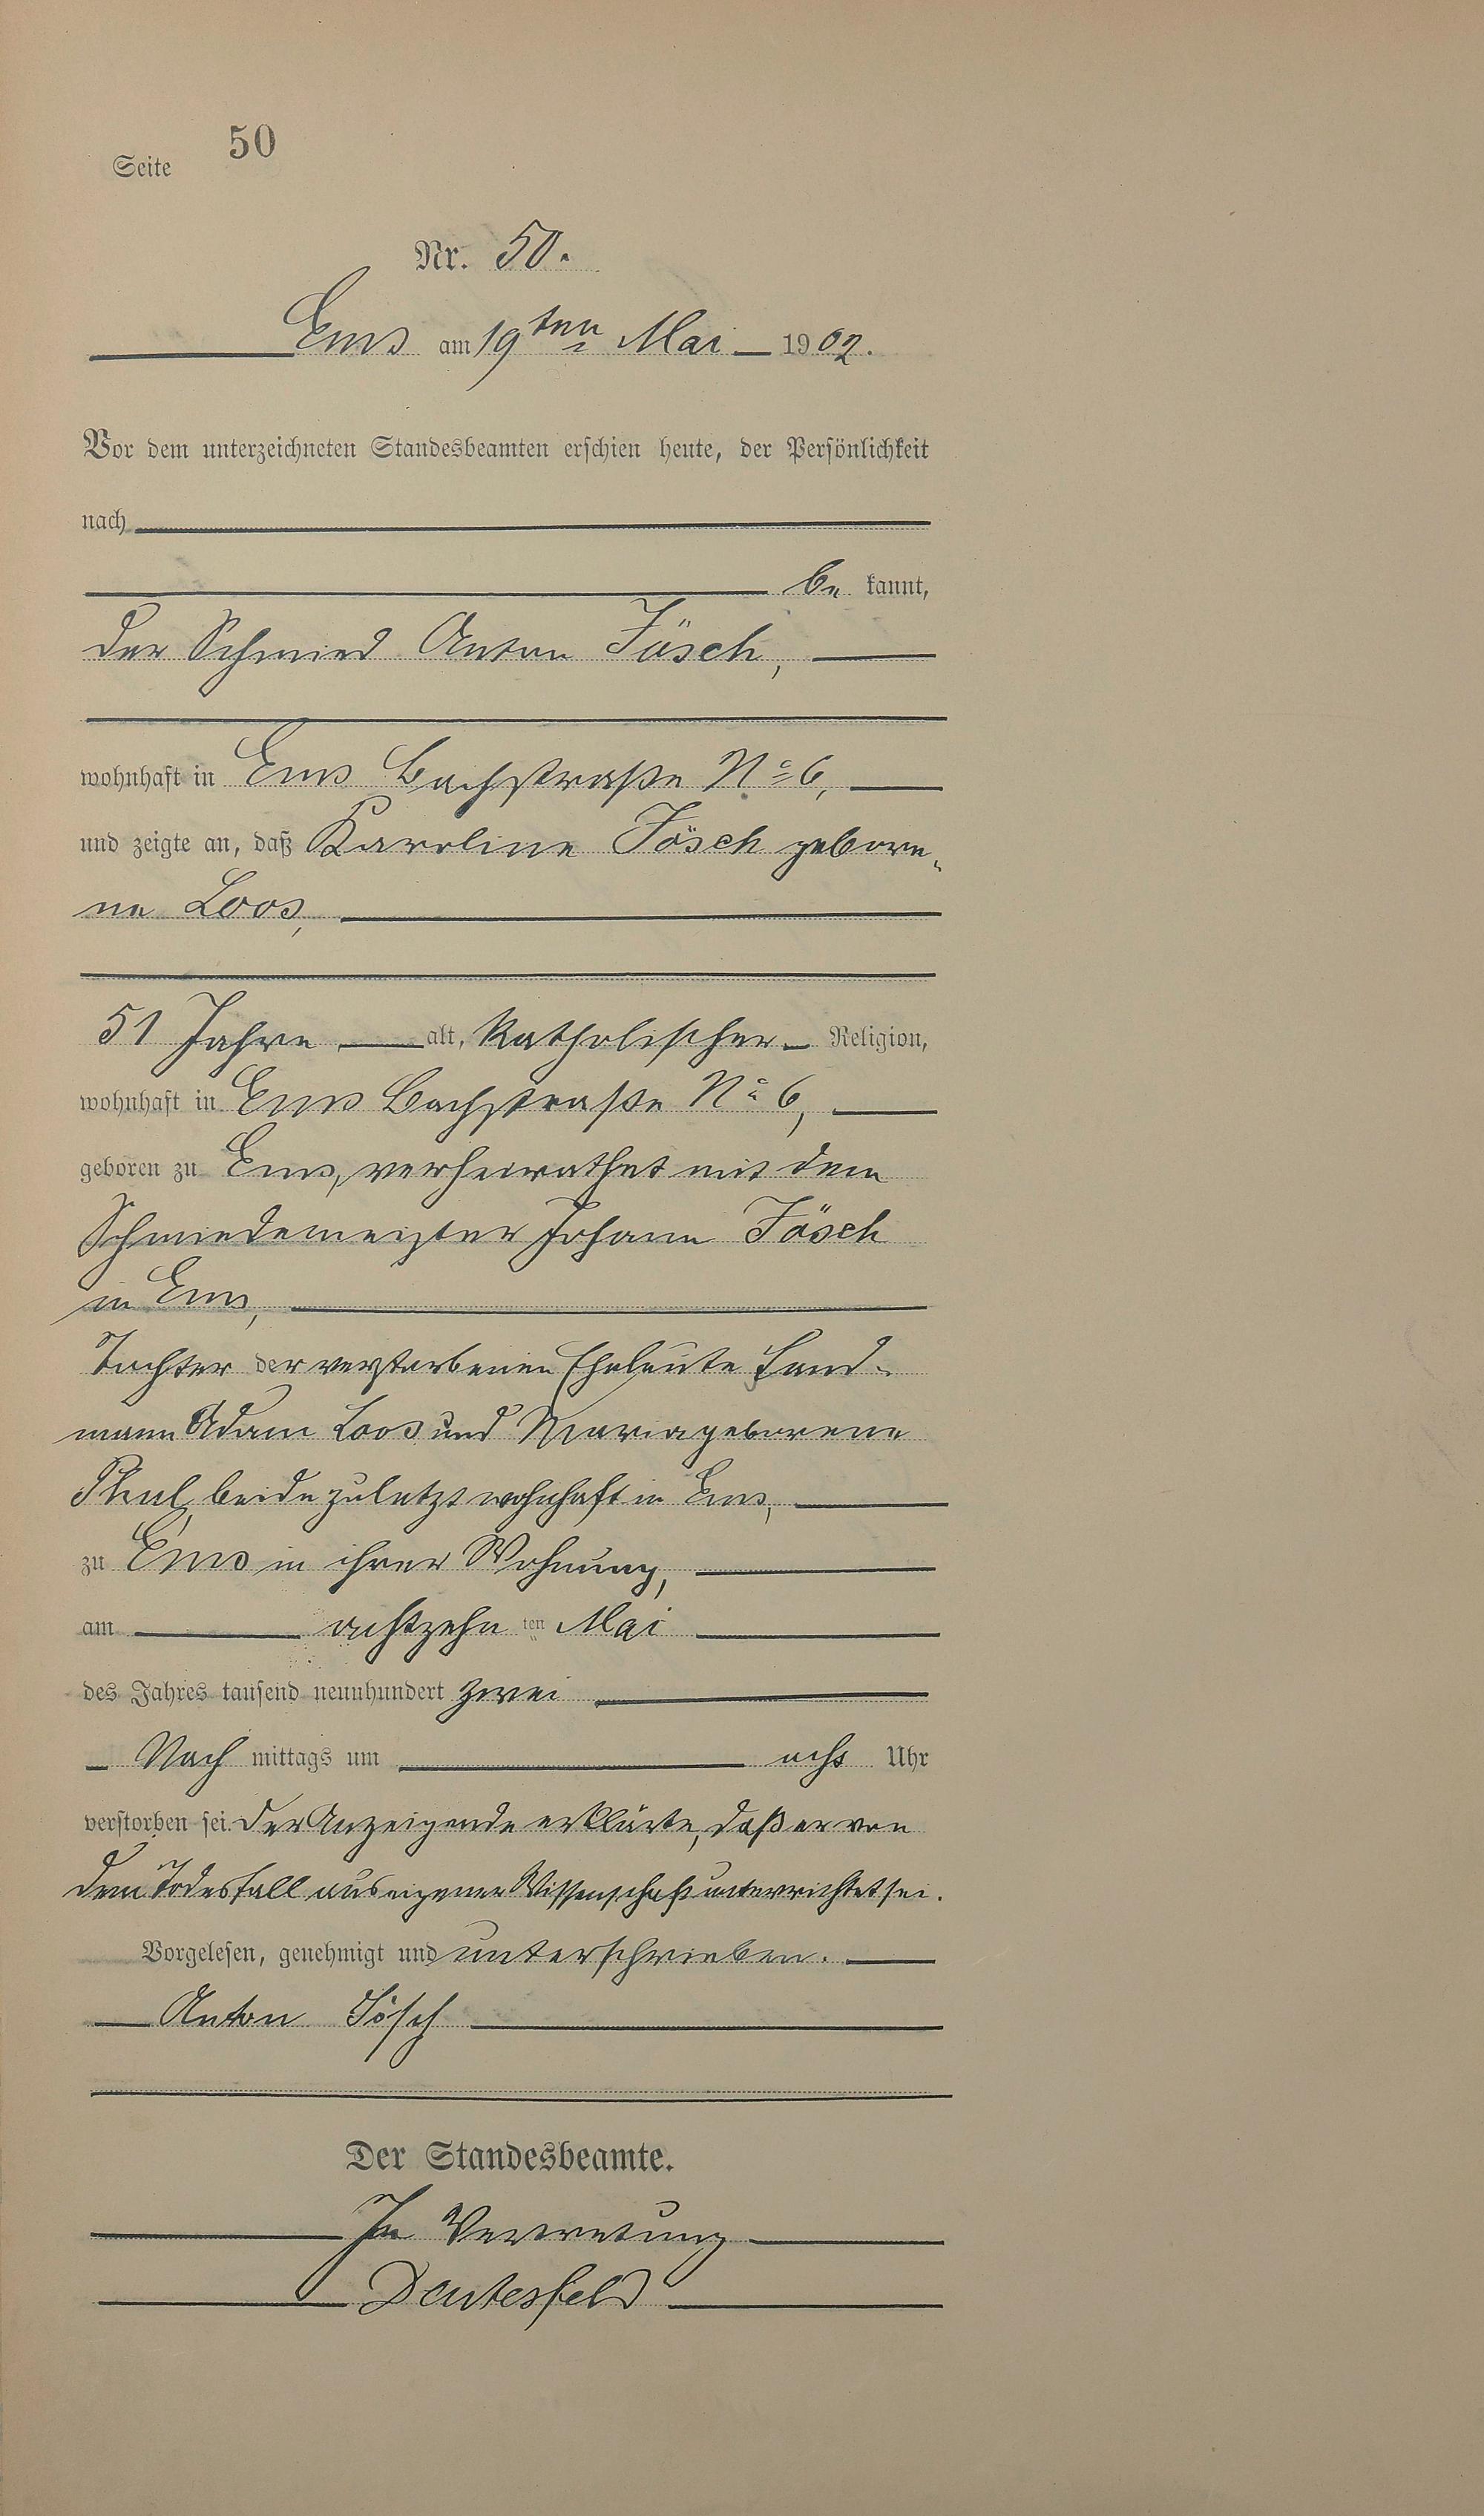 Seite 50
Nr. 50.
Ems am 19ten Mai 1902.
Vor dem unterzeichneten Standesbeamten erschien heute, der Persönlichkeit
nach
be kannt,
der Schmied Anton Jösch,
wohnhaft in Ems Bachstraße No 6,
und zeigte an, daß Karoline Jösch gebore-
ne Loos,
51 Jahre alt, katholischer Religion,
wohnhaft in Ems Bachstraße No 6,
geboren zu Ems, verheirathet mit dem
Schmiedemeister Johann Jösch
in Ems,
Tochter der verstorbenen Eheleute Land-
mann Adam Loos und Maria geborene
beide zuletzt wohnhaft in Ems,
zu Ems in ihrer Wohnung,
am achtzehn ten Mai
des Jahres tausend neunhundert zwei
Nach mittags um acht Uhr
verstorben sei. Der Anzeigende erklärte, daß er von
dem Todesfall aus eigener Wissenschaft unterrichtet sei.
Vorgelesen, genehmigt und unterschrieben.
Anton Jösch
Der Standesbeamte.
In Vertretung